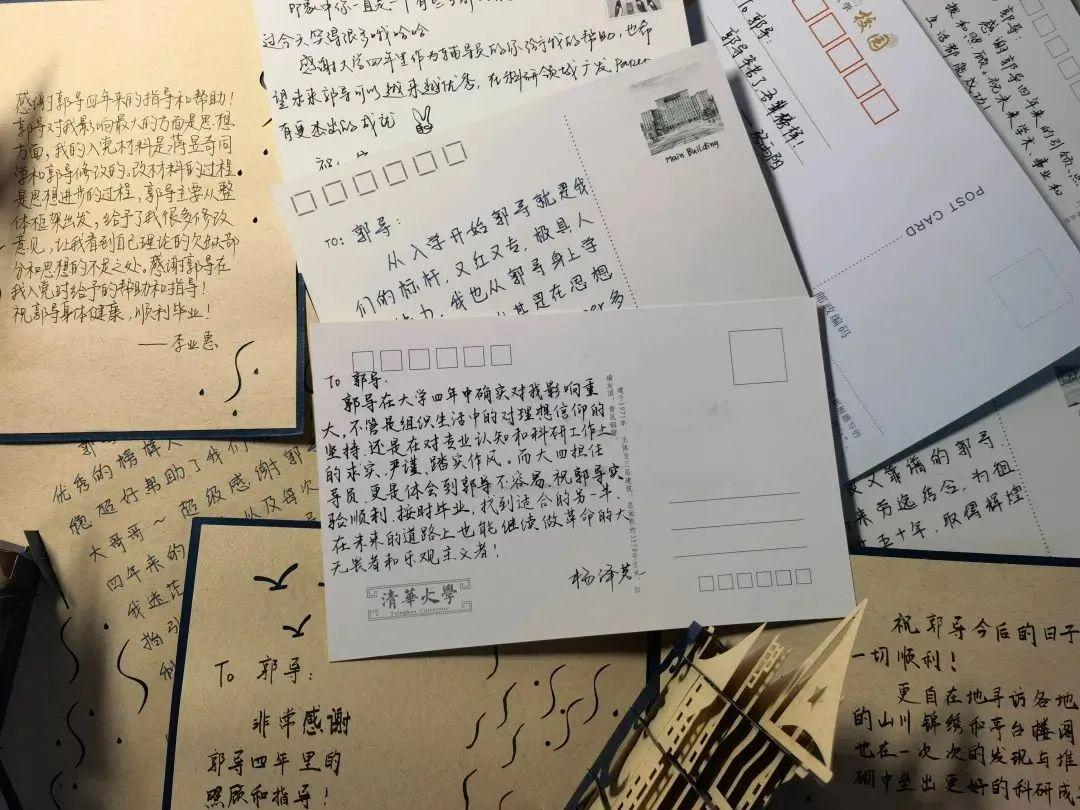 感谢郭导四年来的指导和帮助！
郭导对我影响最大的方面是思想
方面，我的入党材料是蒋昱奇同
学和郭导修改的。改材料的过程
是思想进步的过程，郭导主要从整
体框架出发，给予了我很多修改
意见，让我看到自己理论的欠缺部
分和思想的不足之处。感谢郭导在
我入党时给予的帮助和指导！
祝郭导身体健康，顺利毕业！
——李业惠
过今天笑得很多哦哈哈
感谢大学四年里作为辅导员的你给予我的帮助，也希
望未来郭导可以越来越优秀，在科研领域广发paper
有更杰出的成就
TO：郭导：
从入学开始郭导就是我
们的标杆，又红又专，极具人
我也从郭导身上学
是在思想
多
Main Building
To 郭导：
郭导辛苦了
校园
POST CARD
邮政编码
郭导：
感谢郭导四年来的引领、点
拨和照顾。祝未来学术、事业和
生活都能成功！
To 郭导：
郭导在大学四年中确实对我影响重
大，不管是组织生活中的对理想信仰的
坚持，还是在对专业认知和科研工作上
的求实、严谨、踏实作风。而大四担任
导员，更是体会到郭导不容易。祝郭导实
验顺利，按时毕业，找到适合的另一半，
在未来的道路上也能继续做革命的大
无畏者和乐观主义者！
杨泽茗
清華大學
Tsinghua University
优秀的榜样
能超好帮助了我们
大哥哥～超级感谢郭
四年来的
以及每次
我迷茫
To 郭导：
非常感谢
郭导四年里的
照顾和指导！
又靠谱的郭导
为祖
五十年，取得辉煌
祝郭导今后的日子
一切顺利！
更自在地寻访各地
的山川锦绣和亭台楼阁
也在一次次的发现与堆
砌中垒出更好的科研成